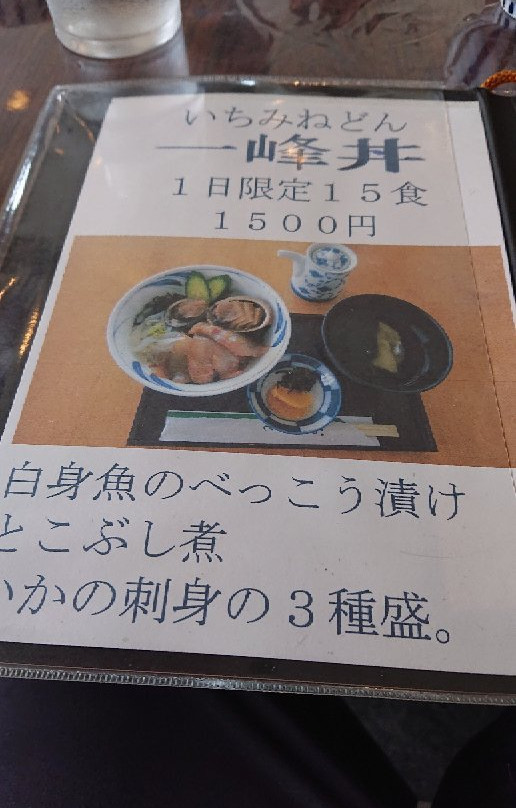 いちみねどん
一峰丼
１日限定１５食
１５００円
白身魚のべっこう漬け
とこぶし煮
いかの刺身の３種盛。